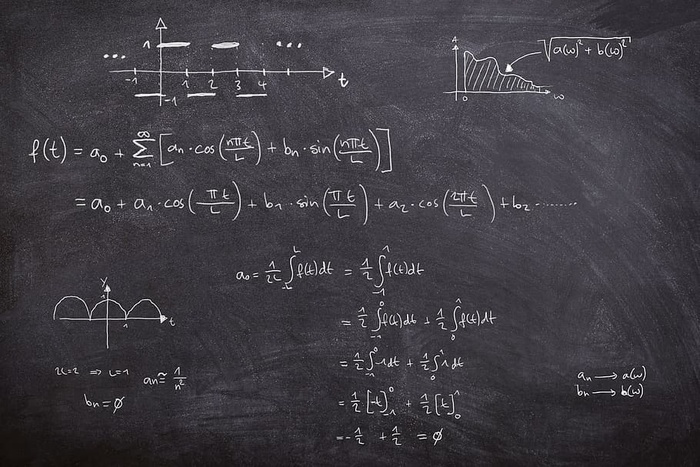 1
-1 1 2 3 4 t
-1
A
√(a(ω)² + b(ω)²)
0 ω
f(t) = a₀ + ∞∑n=1 [an·cos(nπt/L) + bn·sin(nπt/L)]
= a₀ + a₁·cos(πt/L) + b₁·sin(πt/L) + a₂·cos(2πt/L) + b₂ ........
a₀ = 1/2L ∫-L^L f(t)dt = 1/2 ∫-1^1 f(t)dt
= 1/2 ∫-1^0 f(t)dt + 1/2 ∫0^1 f(t)dt
= 1/2 ∫-1^0 -1dt + 1/2 ∫0^1 1dt
= 1/2 [-t]-1^0 + 1/2 [t]0^1
= -1/2 + 1/2 = ∅
y
1
1 t
2L=2 ⇒ L=1
an ≅ 1/n²
bn = ∅
an → a(ω)
bn → b(ω)